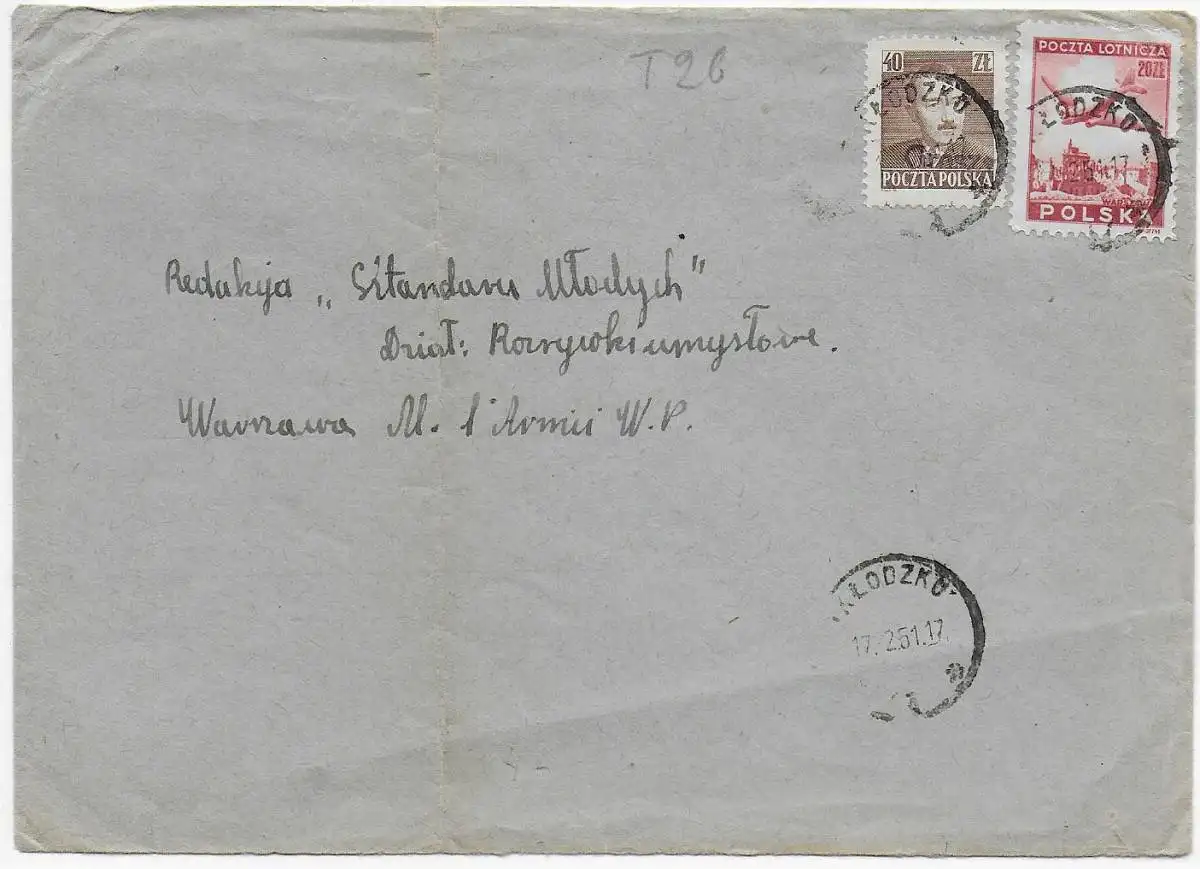 T26
40 ZŁ
POCZTA POLSKA
POCZTA LOTNICZA
20 ZŁ
WARSZAWA
POLSKA
KŁODZKO
KŁODZKO
2.51.17
Redakcja „Sztandaru Młodych"
Dział: Rozrywki umysłowe.
Warszawa Al. I Armii W.P.
KŁODZKO
17.2.51.17